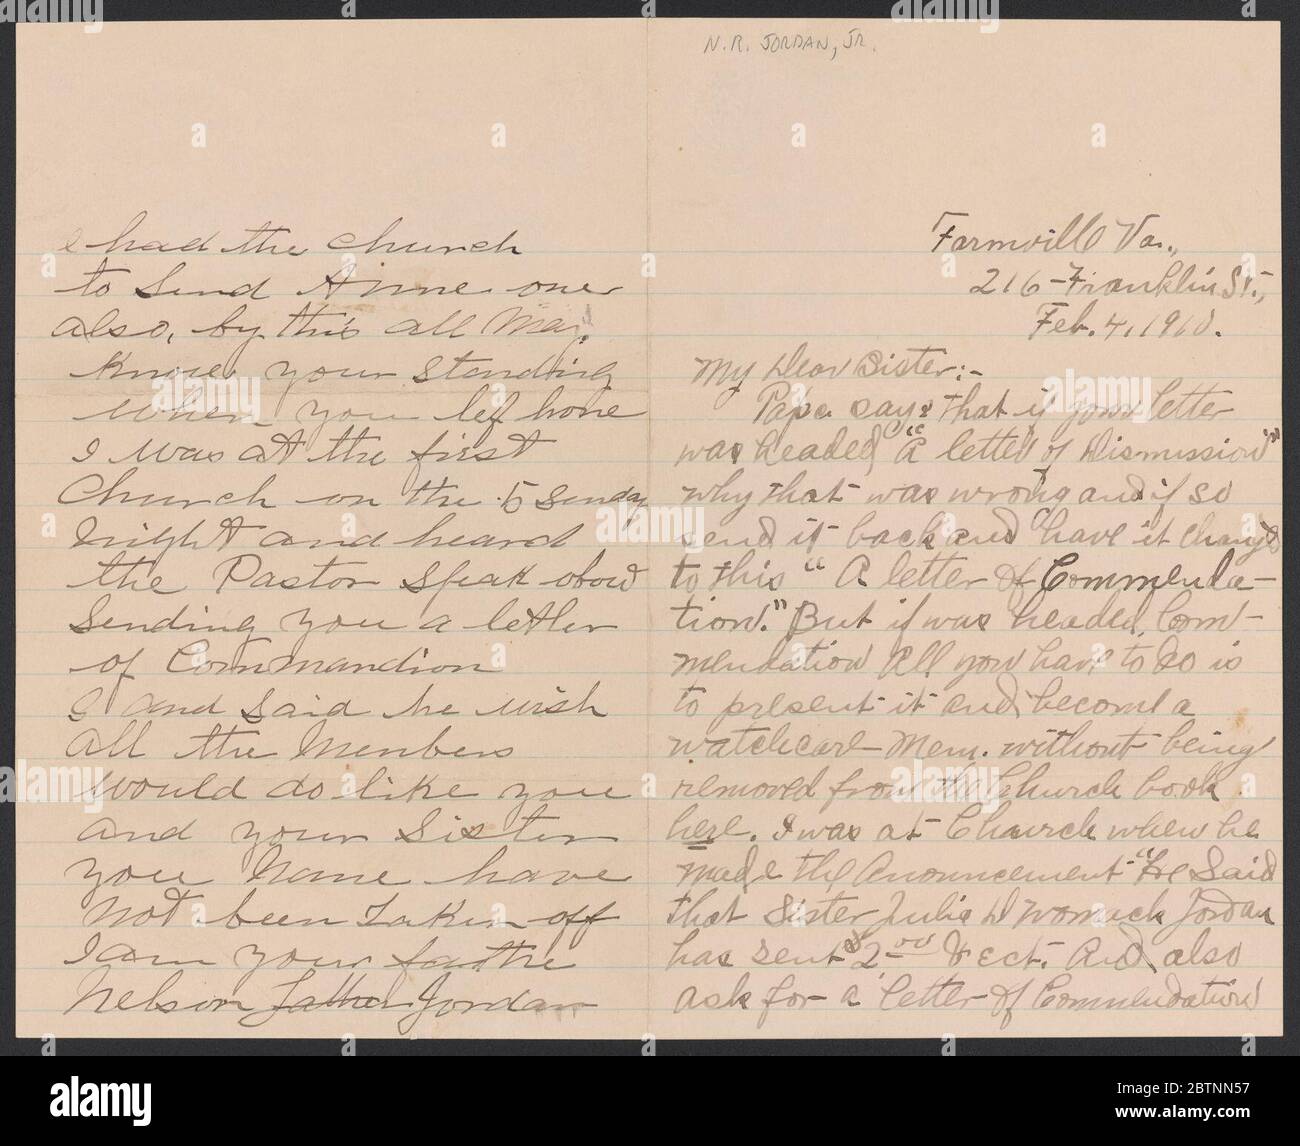 N.R. JORDAN, JR.
I had the Church
to send Annie one
also, by this all May
Know your standing
when you lef home
I was at the first
Church on the 5 Sunday
Night and heard
the Pastor speak
sending you a letter
of Commandion
and said he wish
all the Members
would do like you
and your Sister
you Name have
not been taken off
I am your
Nelson Jordan
Farmville Va.,
216-Franklin St.,
Feb. 4, 1910.
My Dear Sister:-
Papa says that if your letter
was headed "A letter of Dismission"
why that was wrong and if so
send it back and have it changed
to this "A letter of Commenda-
tion." But if was headed Com-
mendation all you have to do is
to present it and become a
watchcare Mem. without being
removed from the Church book
here. I was at Church when he
made the Anouncement "He Said
that Sister Julia D Womack Jordan
has sent $2.00 And also
ask for a letter of Commendation
alamy
Image ID: 2BTNN57
www.alamy.com